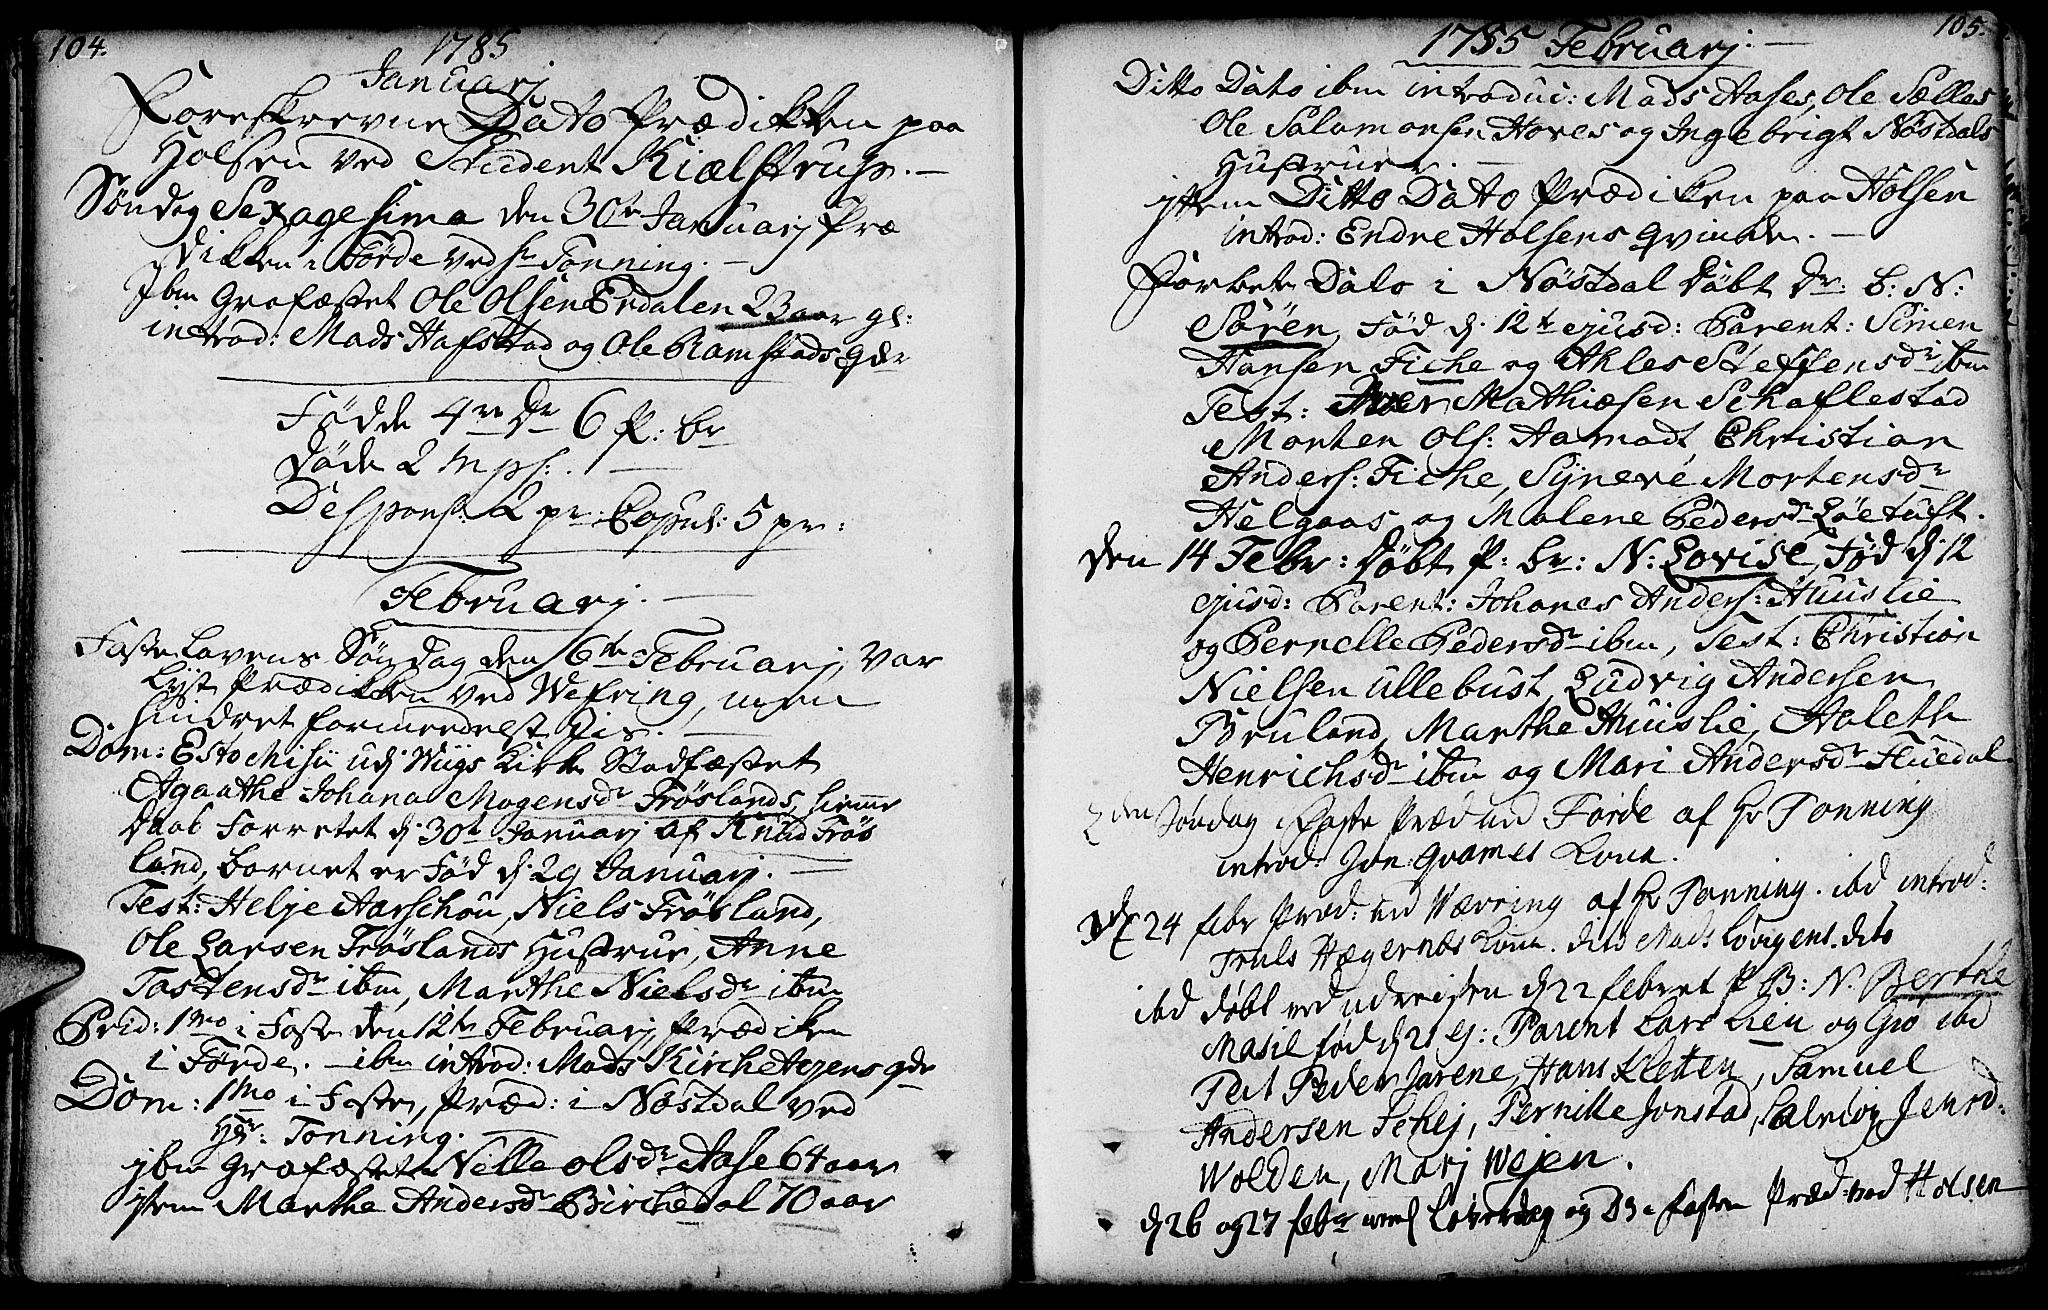 104.
1785
Januarj
Foreskrevne Dato Prædikken paa
Holsen ved Student Kiælstrup. —
Søndag Sexagesima den 30te Januarj Præ
dikken i Førde ved Hr Tonning. —
Ibm Grafæstet Ole Olsen Erdalen 23 aar gl:
introd: Mads Hafstad og Ole Ramstads Qdr
Fødde 4re Dr 6 P: Br
Døde 2 in ps: —
Despons: 2 pr. Copul: 5 pr:
Februarj. —
Faste Lavens Søndag den 6te Februarj, var
Lyst Prædikken ved Wefring, men
hindret formedelst Iis. —
Dom: Esto Mihi udj Wiigs Kirke Stadfæstet
Agaathe Johana Mogensdr Frøslands, hiemme
Daab forretet d: 30te Januarj af Knud Frøs
land, Barnet er Fød d: 29 Januarj. —
Test: Helje Aarschou, Niels Frøsland,
Ole Larsen Frøslands Hustrue, Anne
Tostensdr ibm, Marthe Nielsdr ibm
Prid: 1mo i Faste den 12te Februarj, Prædiken
i Førde. — ibm introd: Mads Kirche Aejens qdr
Dom: 1mo i Faste, Præd: i Nøstdal ved
Hr: Tonning. —
ibm Grafæstet Nille Olsdr Aase 64 aar
item Marthe Andersdr Birchedal 70 aar
105.
1785 Februarj. —
Ditto Dato ibm introduc: Mads Aases, Ole Sælles
Ole Salamonsen Hoves og Ingebrigt Nøstdals
Hustruer. —
item Ditto Dato Prædiken paa Holsen
introd: Endre Holsens Qvinde. —
Forbete Dato i Nøstdal Døbt Dr. B: N:
Søren, Fød d. 12te ejusd: Parent: Simen
Hansen Fiche og Ahles Steffensdr ibm
Test: Mathiæsen Schaflestad
Morten Ols: Aamodt, Christian
Anders: Fiche, Synevé Mortensdr
Helgaas og Malene Pedersdr Løetuft.
den 14 Febr: Døbt P: Br: N: Lovise, Fød d: 12
ejusd: Parent: Johanes Anders: Huuslie
og Pernelle Pedersdr ibm, Test: Christian
Nielsen Ullebust, Ludvig Andersen
Bruland, Marthe Huuslie, Aaleth
Henrichsdr ibm og Mari Andersdr Fluedal
2den Søndag i Faste Præd ved Førde af Hr Tonning
introd: Jon Qvames Kone.
d 24 febr Præd: ved Wævring af Hr Tonning. ibd introd:
Truls Hægernæs Kone. dito Mads Løvigens. dito
ibd døbt ved udreisen d 22 febr et P B: N. Berthe
Masil fød d 21 ej: Parent Lars Lien og Gro ibd
Test Peder Jarene, Hans Kletten, Samuel
Andersen Schej, Pernille Jonstad, Salmøy Jensd:
Wolden, Marj Wejen.
d 26 og 27 febr Løverdag og D 3 i Fasten Præd ved Holsen